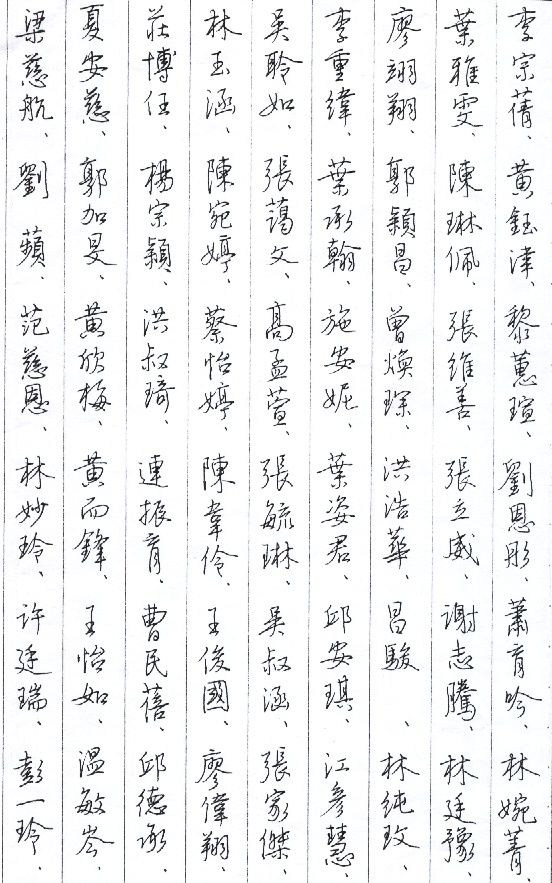 李宗蒨、黃鈺津、黎蕙瑄、劉恩彤、蕭育吟、林婉菁、
葉雅雯、陳琳佩、張維善、張立威、謝志騰、林廷豫、
廖翊翔、郭穎昌、曾煥琛、洪浩華、昌駿、林純玫、
李重緯、葉承翰、施安妮、葉姿君、邱安琪、江彥慧、
吳聆如、張藹文、高孟萱、張毓琳、吳叔涵、張家傑、
林玉涵、陳宛婷、蔡怡婷、陳韋伶、王俊國、廖偉翔、
莊博任、楊宗穎、洪叔琦、連振育、曹民蓓、邱德承、
夏安慈、郭加旻、黃欣梅、黃而鋒、王怡如、溫敏岑、
梁慈航、劉蘋、范慈恩、林妙玲、許廷瑞、彭一玲、